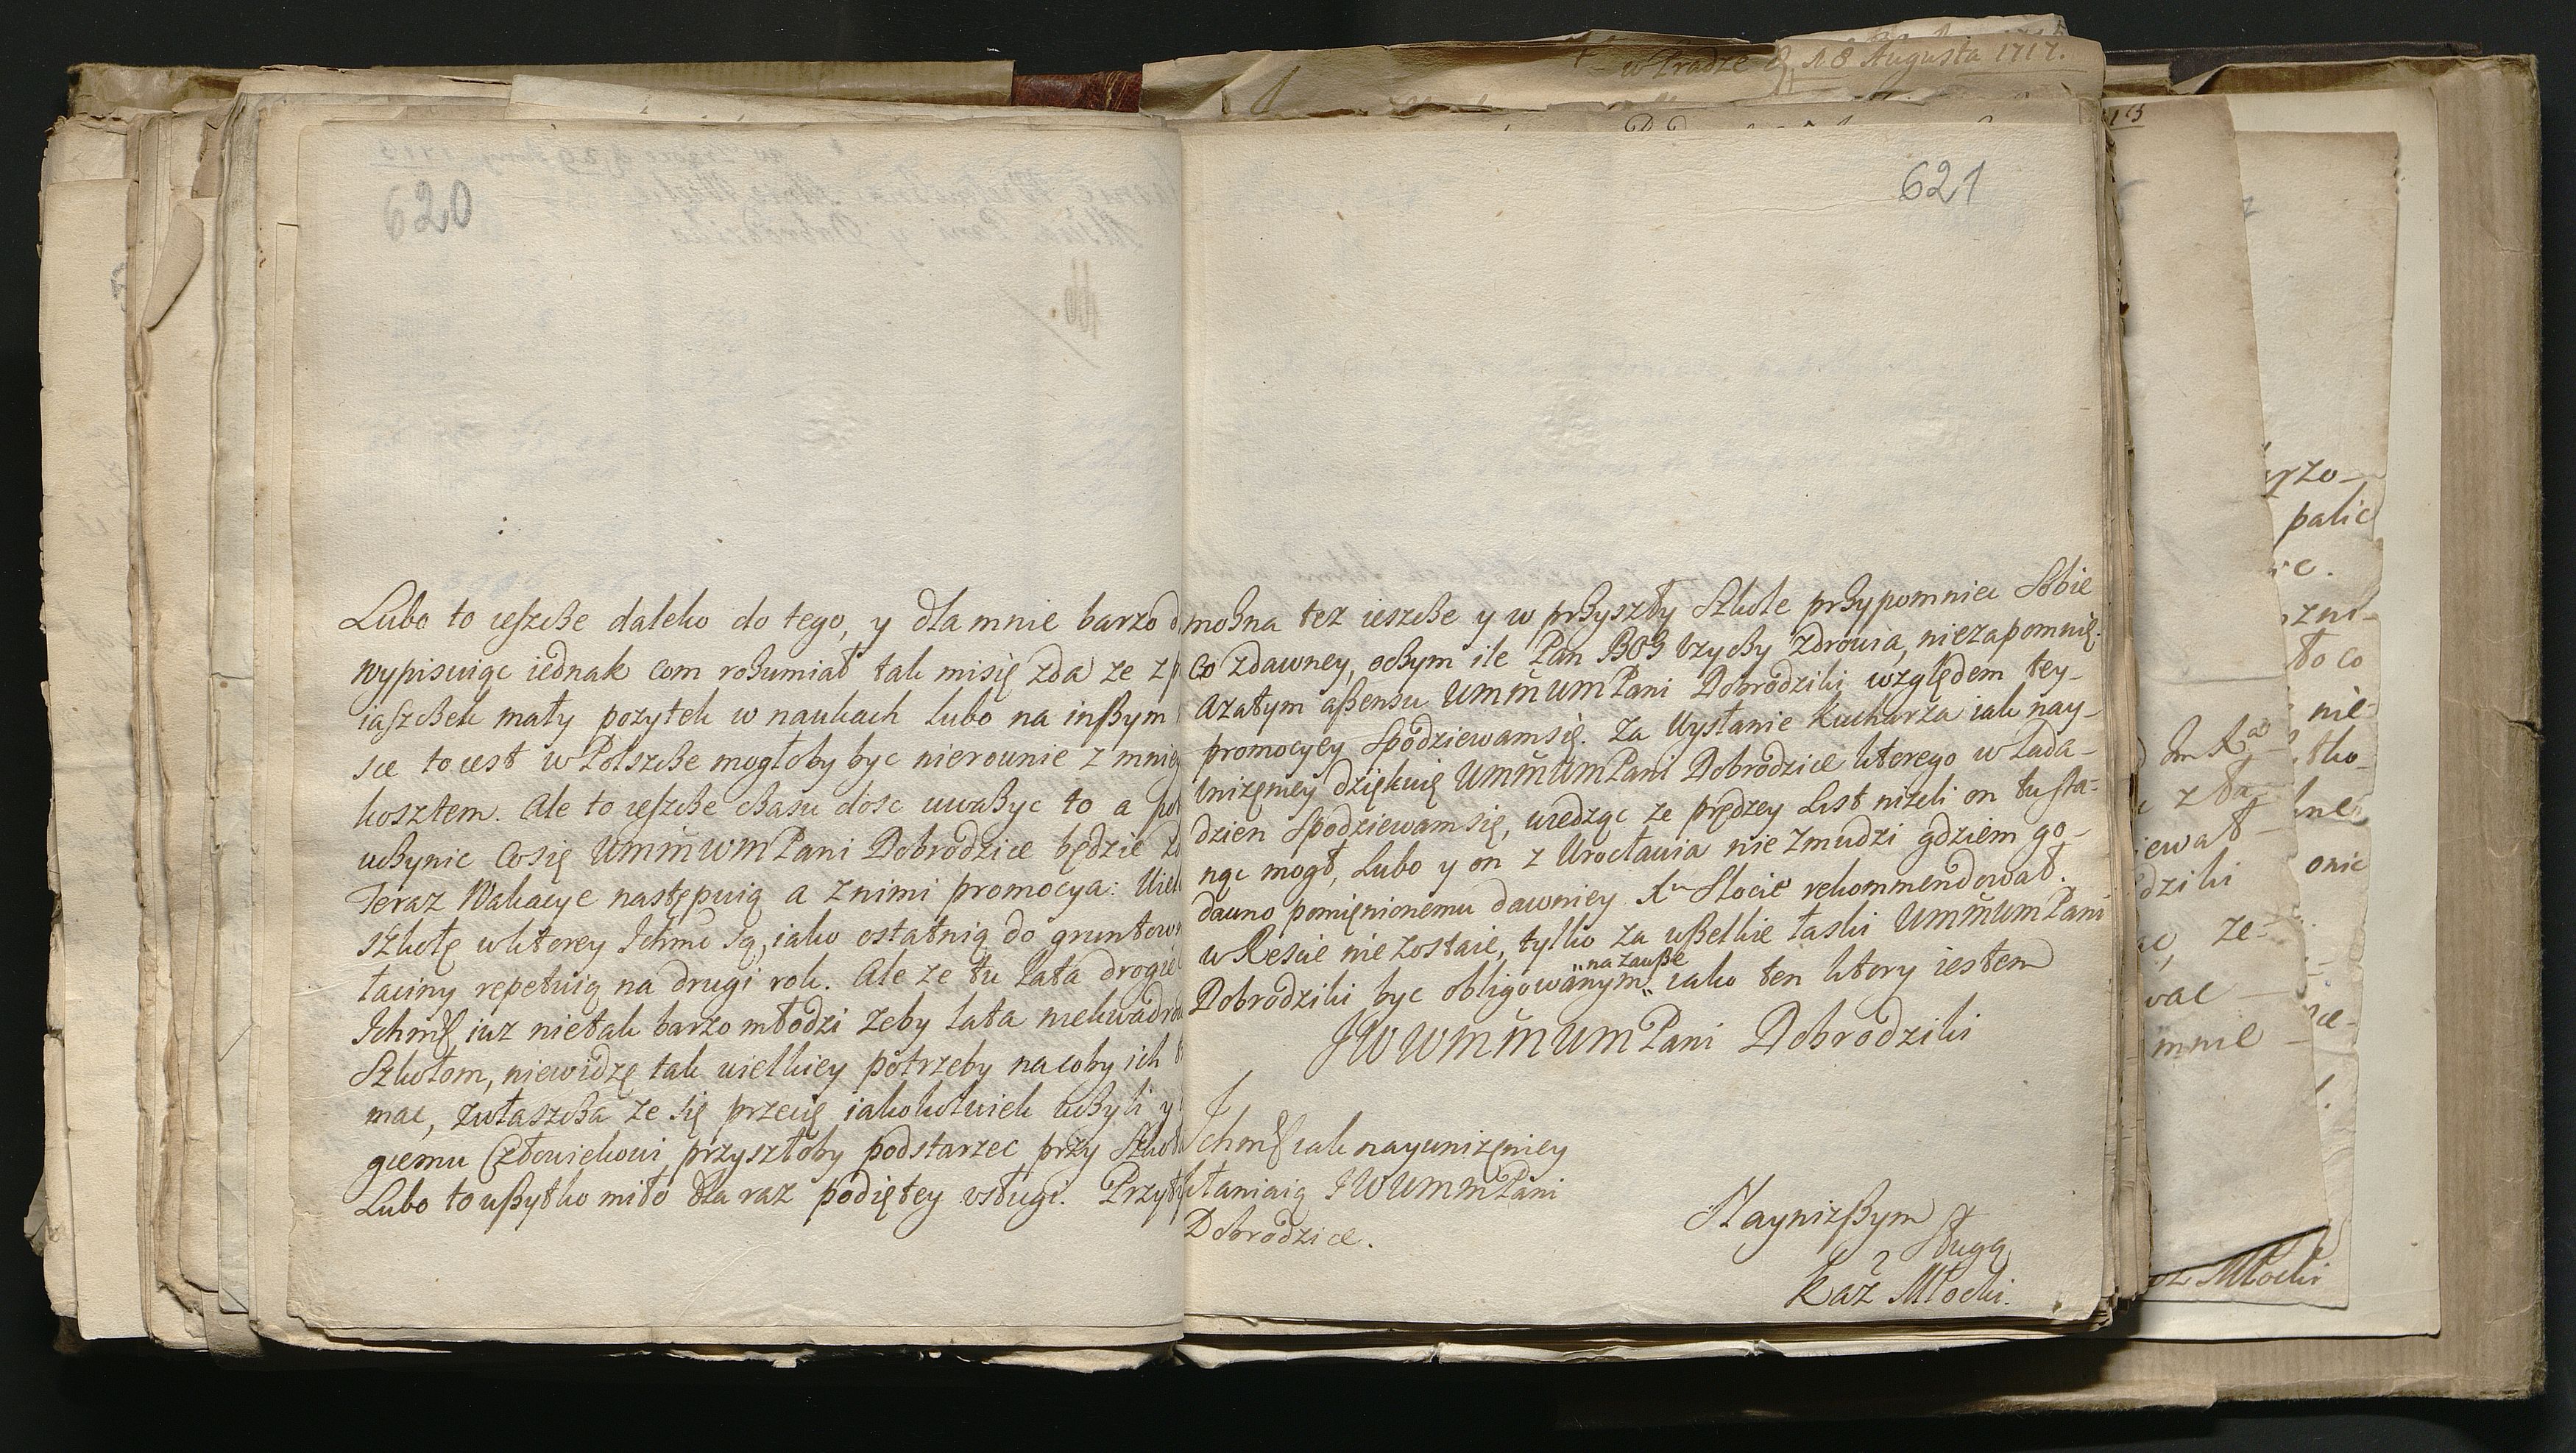 620
Lubo to ieszcze daleko do tego, y dla mnie barzo
wypisuiąc iednak com rozumiał tak misię zda ze
iaszczek mały pozytek w naukach lubo na inszym
sce to iest w Polszcze mogłoby byc nierownie z mniey
kosztem. Ale to ieszcze czasu dosc uwazyc to a
uczynic Cosię UmmWmPani Dobrodzice będzie
Teraz Wakacye następuią a znimi promocya:
szkołę wktorey Ichmć są, iako ostatnią do
łaciny repetuią na drugi rok. Ale ze tu lata drogie
Ichmć iuz nietak barzo młodzi zeby lata
Szkołom, niewidzę tak wielkiey potrzeby nacoby ich
mac, zwłaszcza ze się przecię iakokolwiek uczyli y
giemu Człowiekowi przyszłoby podstarzec przy
Lubo to wszytko miło dla raz podiętey usługi.
w Pradze d. 18 Augusta 1717.
621
mozna tez ieszcze y w przyszły Szkole przypomniec Sobie
Co zdawney, oczym ile Pan BOG Uzyczy Zdrowia, niezapomnię.
Azatym assensu UmmUmPani Dobrodziki względem tey-
promocyey Spodziewamsię. Za Wysłanie Kucharza iak nay-
unizęniey dziękuię UmmUmPani Dobrodzice ktorego w lada-
dzien Spodziewamsię, wiedząc ze prędzey List nizeli on tu sta-
nąc mogł, Lubo y on z Wrocławia nie zmudzi gdziem go-
dawno pomięnionemu dawniey Xu Slocie rekommendował.
w Rescie nie zostaie, tylko za wszelkie łaski UmmUmPani
Dobrodziki byc obligowanym na zawsze iako ten ktory iestem
JWWmmUmPani Dobrodziki
Ichmć iak nayunizęniey
kłaniaią JWUmmPani
Dobrodzice.
Nayniszszym
Sługą
Kaz Młocki.
palic
to co
nie-
onic
dziki
ze-
mnie
Młocki